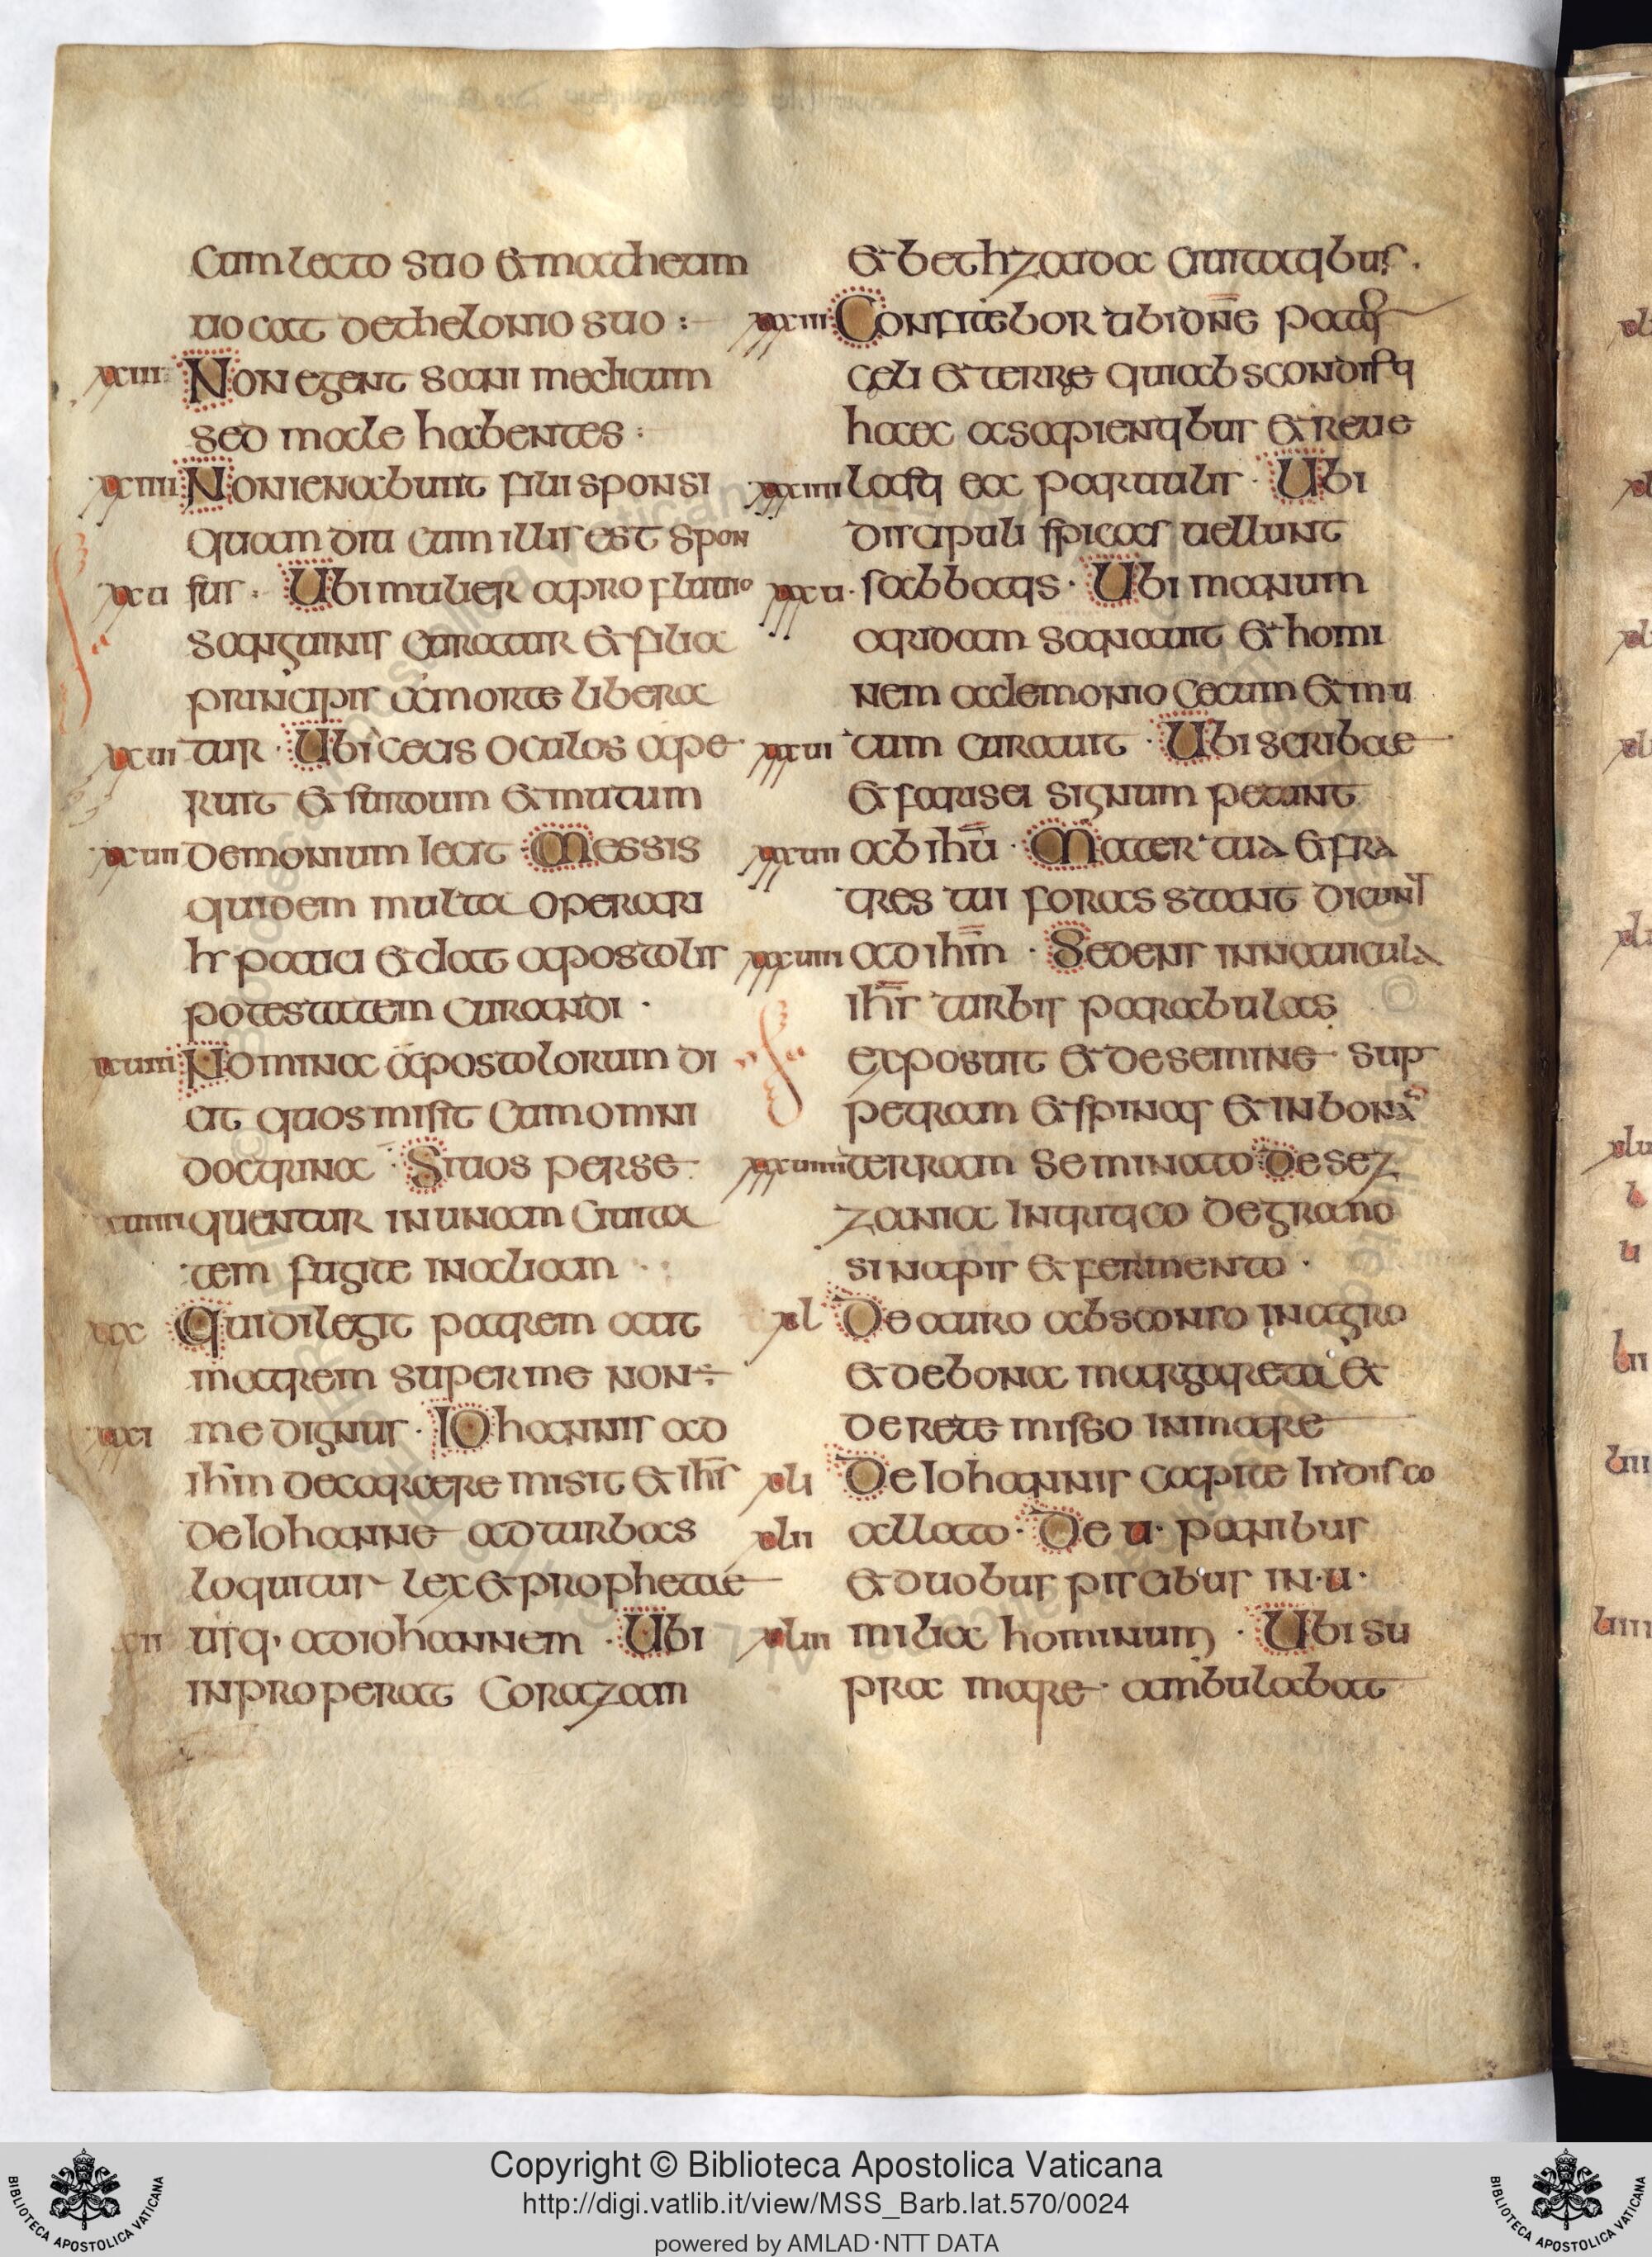 cum lecto suo et matheum
uocat dethelonio suo :
xxiii Non egent sani medicum
sed male habentes :
xxiiii Non ienabunt fili sponsi
quam diu cum illis est spon
xxu sus . Ubi mulier a profluuio
sanguinis curatur et filia
principis a morte libera
xxui tur . Ubi cecis oculos ape
ruit et surdum et mutum
xxuii demonium iecit Messis
quidem multa operari
hr pauci et dat apostolis
potestatem curandi .
xxuiii Nomina apostolorum di
cit quos misit cum omni
doctrina . Si uos perse
xxuiiii quentur in unam ciuita
tem fugite in aliam
xxx Qui dilegit patrem aut
matrem super me non ÷
xxxi me dignus . Iohannis ad
ihm̄ de carcere misit et ihs̄
de iohanne ad turbas
loquitur lex et prophetae
xxxii usq, ad iohannem . Ubi
inproperat Corazam
et bethzaida ciuitatibus .
xxxiii Confitebor tibi dn̄e pater
celi et terre qui abscondisti
haec a sapientibus et reue
xxxiiii lasti ea paruulis . Ubi
discipuli spicas uellunt
xxxu . sabbatis . Ubi manum
aridam sanauit et homi
nem a demonio cecum et mu
xxxui tum curauit . Ubi scribae
et farisei signum petunt
xxxuii ab ihū . Mater tua et fra
tres tui foras stant dicunt
xxxuiii ad ihm̄ . Sedens in nauicula
ihs̄ turbis parabulas
exposuit et de semine sup
petram et spinas et in bonā
xxxuiiii terram seminato De sez
zania in tritico de grano
sinapis et fermento .
xl De auro absconso in agro
et de bona margareta et
de rete misso in mare
xli De iohannis capite in disco
xlii allato . De u . panibus
et duobus piscibus in . u .
xliii milia hominum . Ubi su
pra mare ambulabat
Copyright © Biblioteca Apostolica Vaticana
http://digi.vatlib.it/view/MSS_Barb.lat.570/0024
powered by AMLAD·NTT DATA
BIBLIOTECA APOSTOLICA VATICANA
BIBLIOTECA APOSTOLICA VATICANA